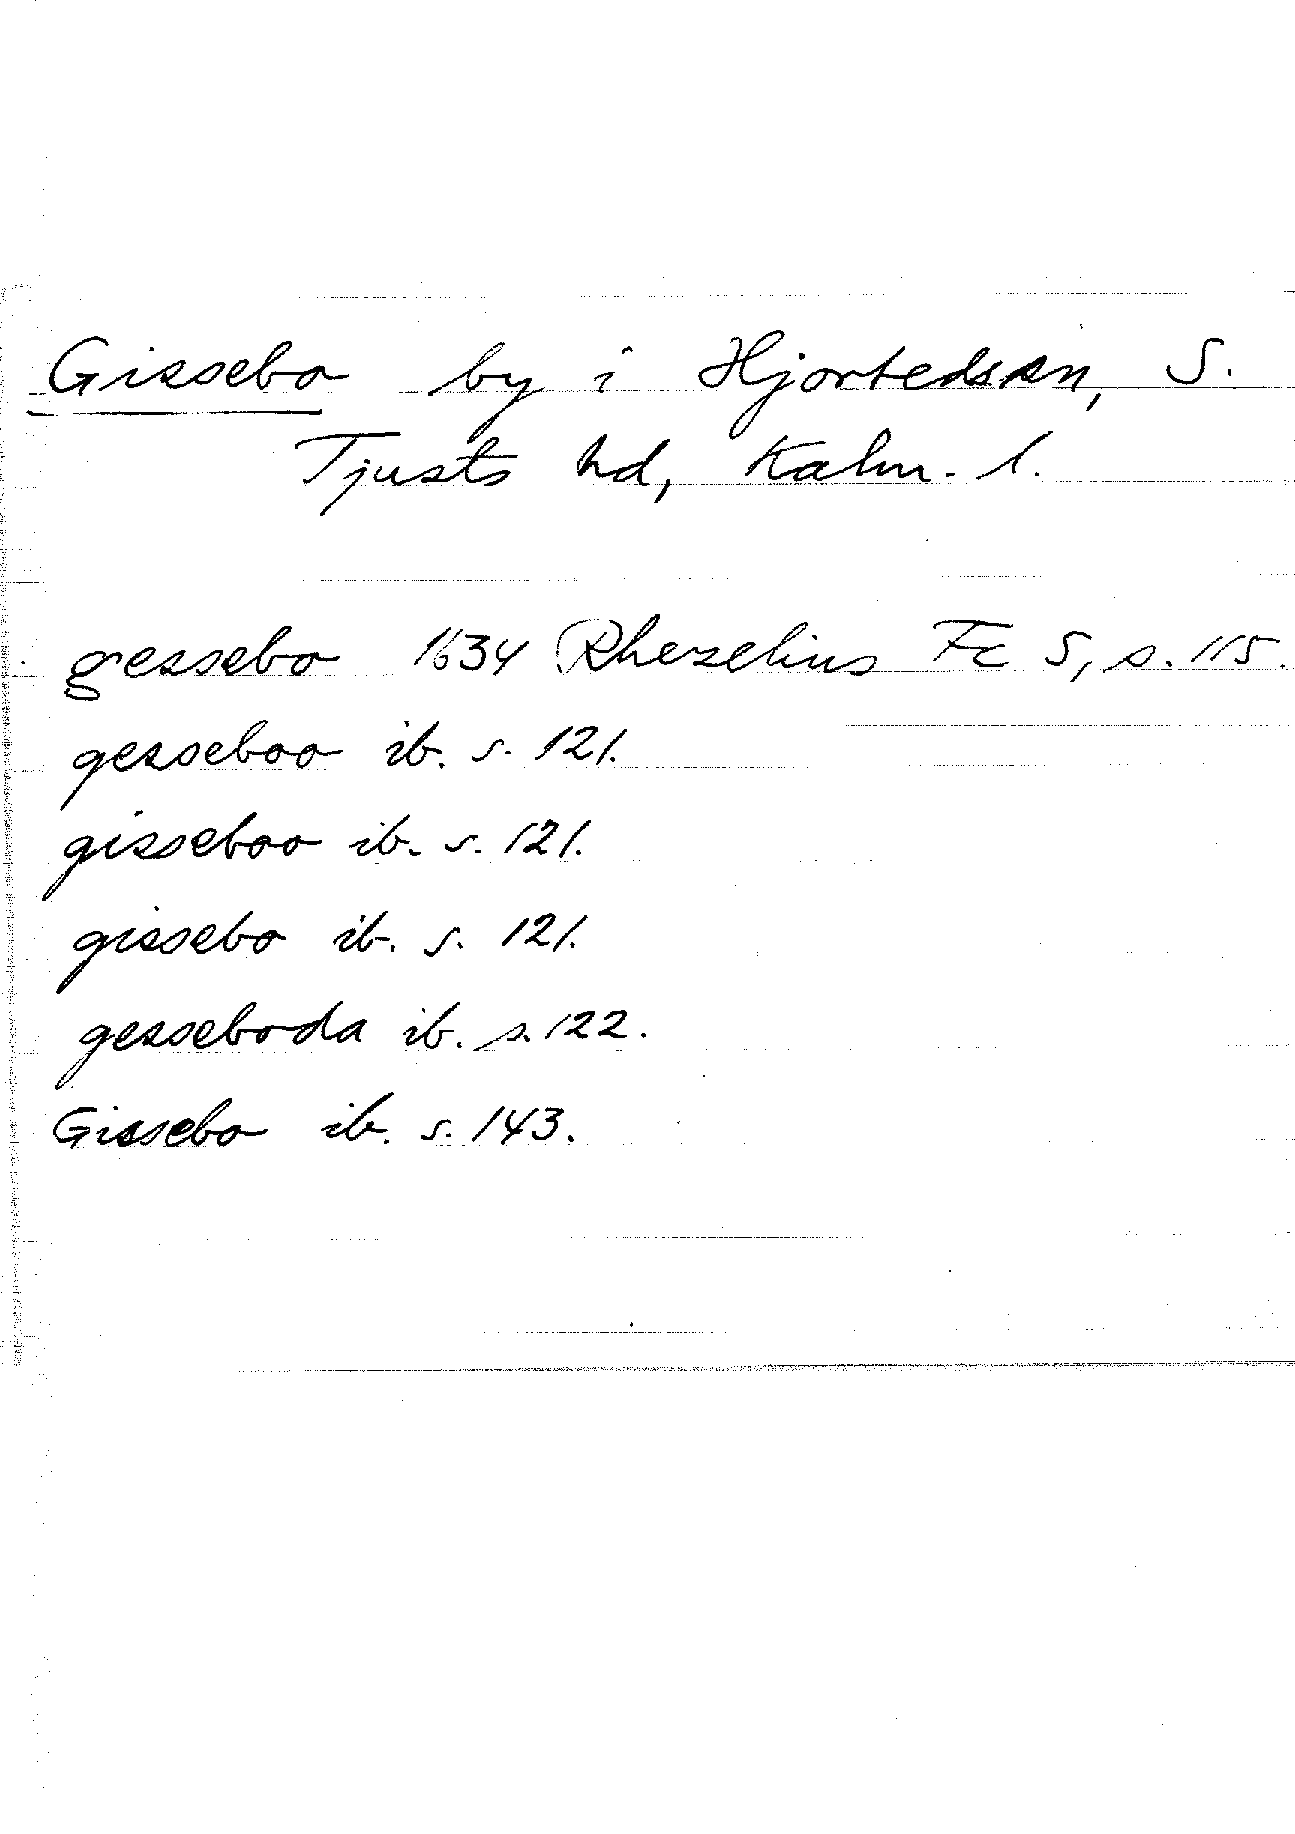 Gissebo by i Hjorteds sn, S.
Tjusts hd, Kalm. l.
gessebo 1634 Rhezelius Fc 5, s. 115.
gesseboo ib. s. 121.
gisseboo ib. s. 121.
gissebo ib. s. 121.
gesseboda ib. s. 122.
Gissebo ib. s. 143.